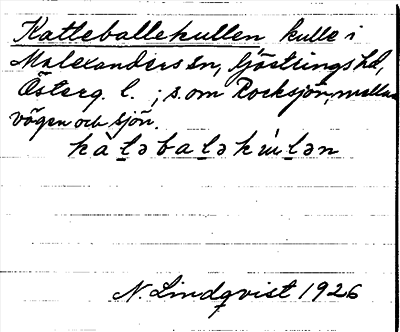 Katteballekullen kulle i
Malexanders sn, Göstrings hd,
Österg. l. ; s.om Rocksjön, mellan
vägen och sjön.
N. Lindqvist 1926